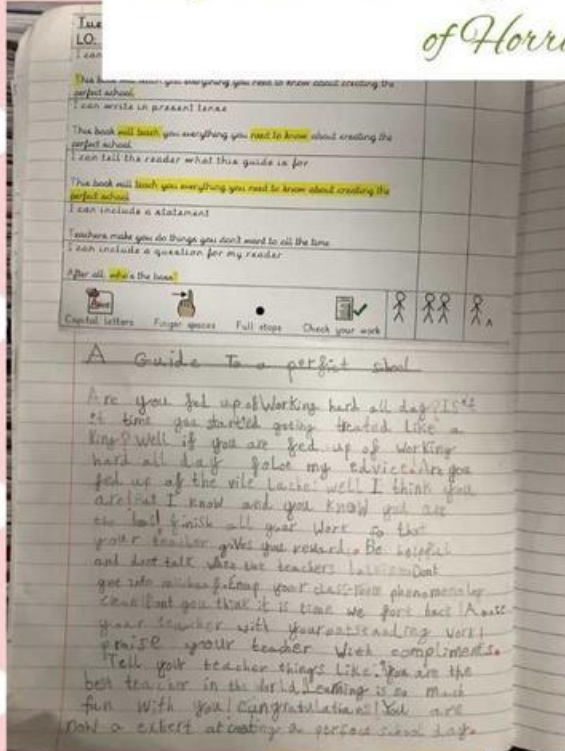 of Horri
Tue
LO:
I can
This book will teach you everything you need to know about creating the
perfect school.
I can write in present tense
This book will teach you everything you need to know about creating the
perfect school
I can tell the reader what this guide is for
This book will teach you everything you need to know about creating the
perfect school
I can include a statement
Teachers make you do things you don't want to all the time
I can include a question for my reader
After all, who's the boss?
Capital letters Finger spaces Full stops Check your work
A Guide To a perfict school
Are you fed up of Working hard all day?
it time you started geting treated like a
King? Well if you are fed up of Working
hard all day folow my edvice. Are you
fed up of the vile well I think you
are! But I know and you know you are
the finish all your Work so that
your teacher gives you reward. Be helpful
and dont talk when the teachers Dont
get into Keep your class room
clean! Dont you think it is time we back!
your teacher with your outstanding work!
praise your teacher With compliments.
Tell your teacher things like: You are the
best teacher in the World. Learning is so much
fun with you! Cungratulations! You are
now a expert at a perfect school day.